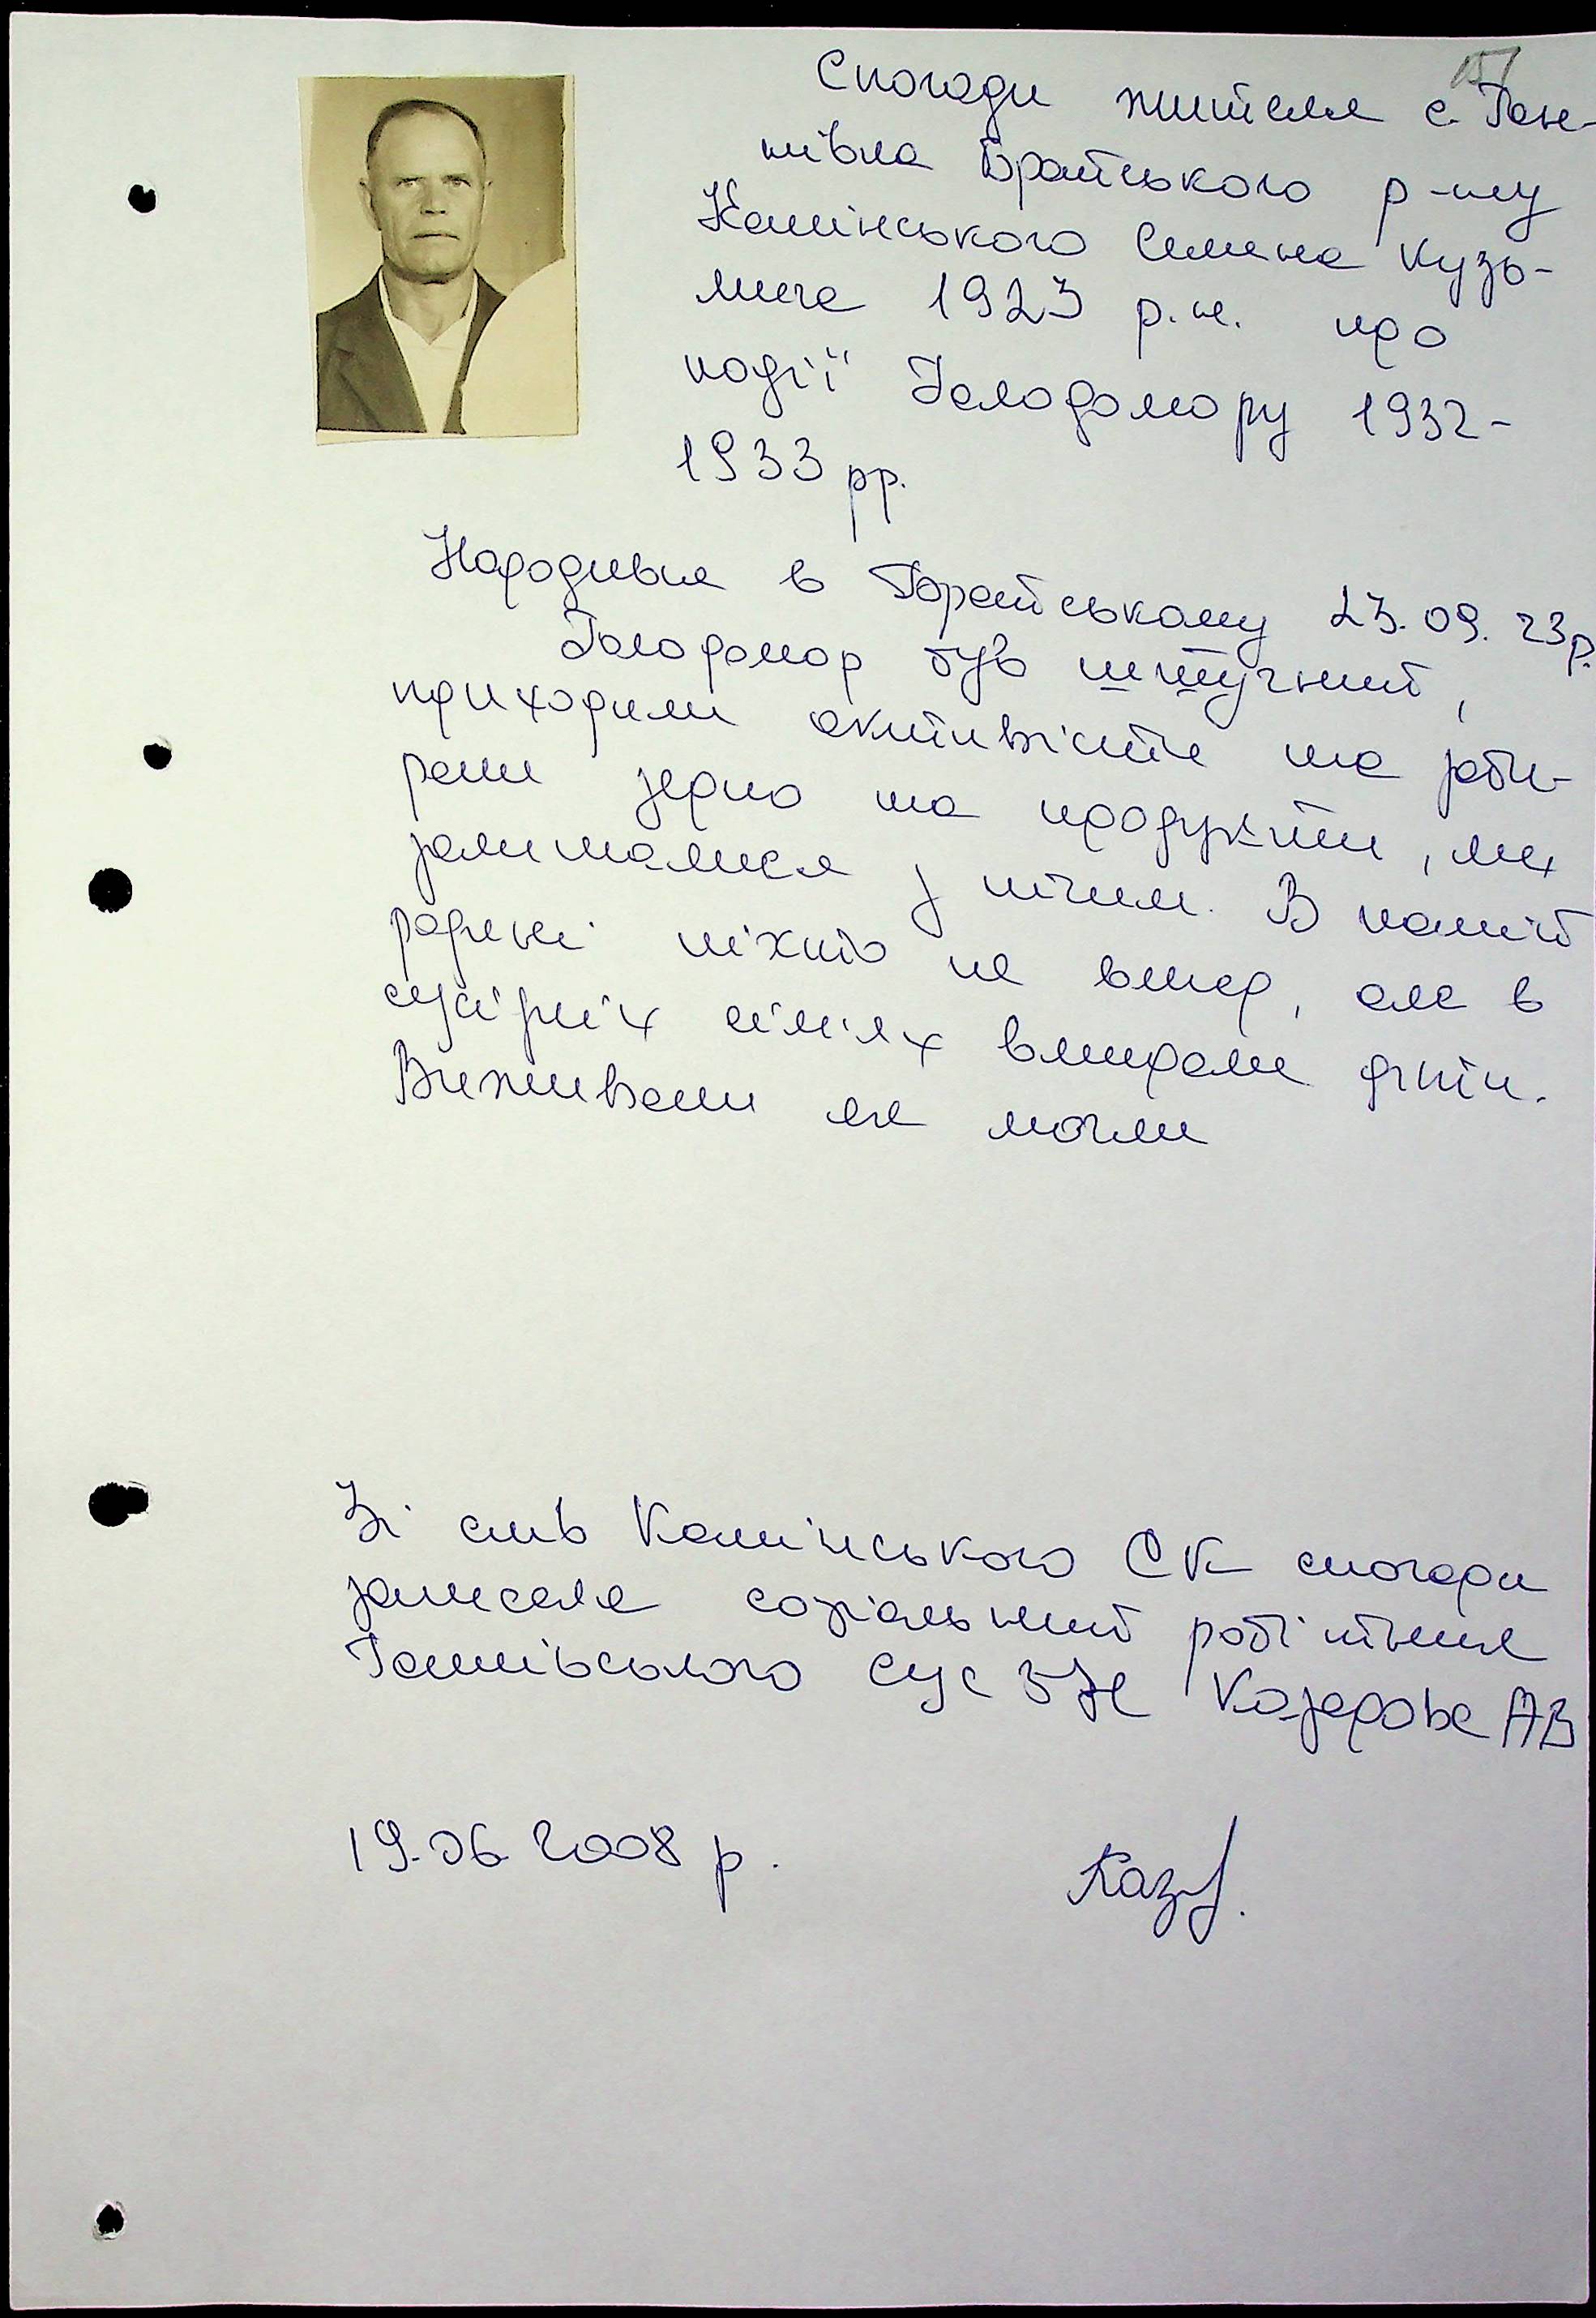 157
Спогади жителя с. Ган-
нівка Братського р-ну
Камінського Семена Кузь-
мича 1923 р.н. про
події Голодомору 1932-
1933 рр.
Народився в Братському 23.09.23р.
Голодомор був штучний,
приходили активісти та заби-
рали зерно та продукти, ми
залишалися з нічим. В нашій
родині ніхто не вмер, але в
сусідніх сім'ях вмирали діти.
Виживали як могли
Зі слів Камінського СК спогади
записала соціальний робітник
Ганнівського
Казарова АВ
19.06.2008 р.